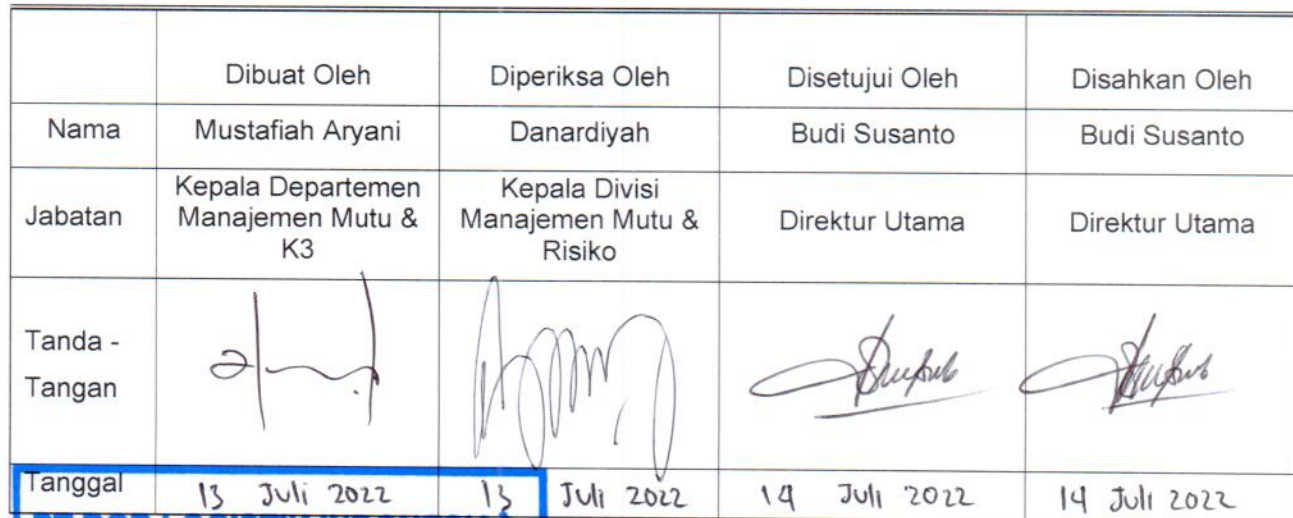 Dibuat Oleh Diperiksa Oleh Disetujui Oleh Disahkan Oleh
Nama Mustafiah Aryani Danardiyah Budi Susanto Budi Susanto
Jabatan Kepala Departemen Manajemen Mutu & K3 Kepala Divisi Manajemen Mutu & Risiko Direktur Utama Direktur Utama
Tanda -
Tangan
Tanggal 13 Juli 2022 13 Juli 2022 14 Juli 2022 14 Juli 2022